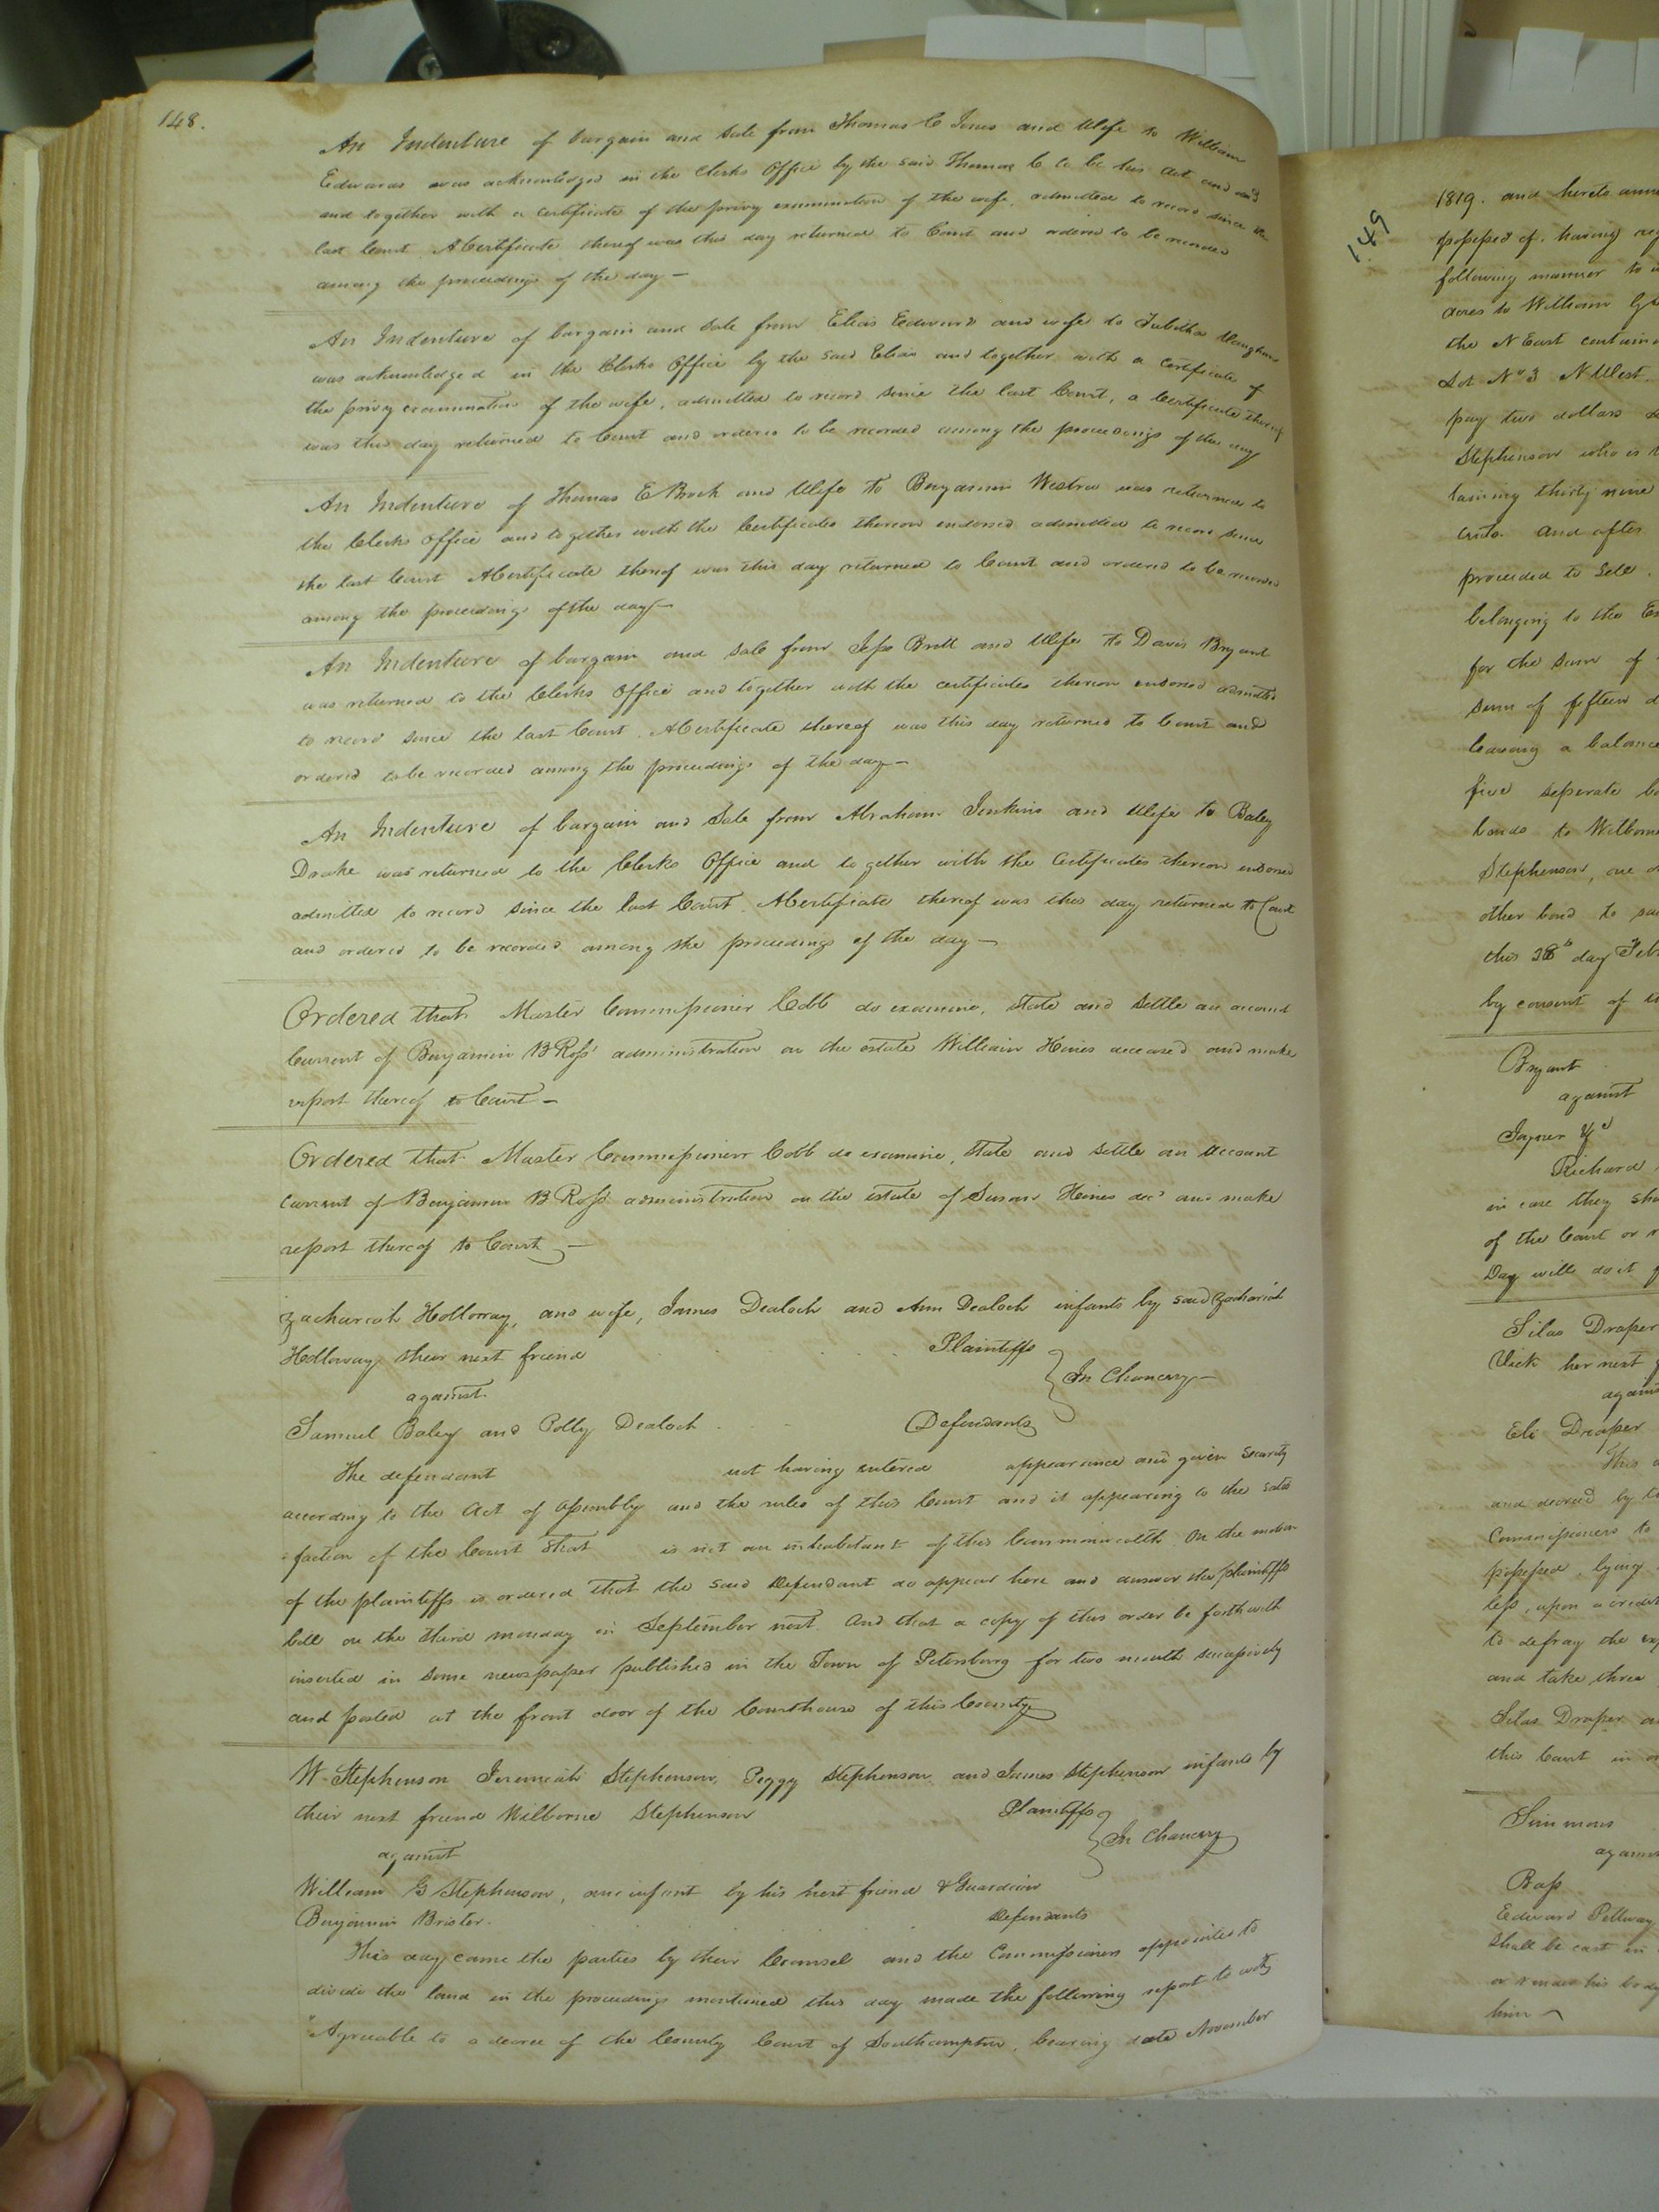 148.
An Indenture of bargain and Sale from Thomas C Jones and Wife to William
Edwards was acknowledged in the Clerks Office by the said Thomas C to be his act and
and together with a certificate of the privy examination of the wife, admitted to record since the
last Court A Certificate thereof was this day returned to Court and ordered to be recorded
among the proceedings of the day —
An Indenture of bargain and Sale from Elias Edwards and wife to Tabitha
was acknowledged in the Clerks Office by the said Elias and together with a Certificate of
the privy examination of the wife, admitted to record since the last Court, a Certificate thereof
was this day returned to Court and ordered to be recorded among the proceedings of the day
An Indenture of Thomas E and Wife to Benjamin Westra was returned to
the Clerks Office and together with the Certificates thereon endorsed admitted to record since
the last Court A Certificate thereof was this day returned to Court and ordered to be recorded
among the proceedings of the day —
An Indenture of bargain and Sale from Jesse Britt and Wife to Davis Bryant
was returned to the Clerks Office and together with the certificates thereon endorsed admitted
to record since the last Court. A Certificate thereof was this day returned to Court and
ordered to be recorded among the proceedings of the day —
An Indenture of bargain and Sale from Abraham Jenkins and Wife to Baley
Drake was returned to the Clerks Office and together with the Certificates thereon endorsed
admitted to record since the last Court. A Certificate thereof was this day returned to Court
and ordered to be recorded among the proceedings of the day —
Ordered that Master Commissioner Cobb do examine, state and settle an account
Current of Benjamin B Ross' administration on the estate William Hines deceased and make
report thereof to Court —
Ordered that Master Commissioner Cobb do examine, State and settle an Account
Current of Benjamin B Ross' administration on the estate of Susan Hines decd and make
report thereof to Court —
Zachariah Holloway, and wife, James Dealoch and Ann Dealoch infants by said Zachariah
Holloway their next friend Plaintiffs
In Chancery —
against
Samuel Baley and Polly Dealoch Defendants
The defendant not having entered appearance and given security
according to the Act of Assembly and the rules of this Court and it appearing to the satis
faction of the Court that is not an inhabitant of this Commonwealth On the motion
of the plaintiffs is ordered that the said Defendant do appear here and answer the plaintiffs
bill on the third monday in September next. And that a copy of this order be forthwith
inserted in some newspaper published in the Town of Petersburg for two month successively
and posted at the front door of the Courthouse of this County
W Stephenson Jeremiah Stephenson, Peggy Stephenson and James Stephenson infants by
their next friend Wilborne Stephenson Plaintiffs
In Chancery
against
William G Stephenson, an infant by his next friend & Guardian
Benjamin Brister. Defendants
This day came the parties by their Counsel and the Commissioners appointed to
divide the land in the proceedings mentioned this day made the following report to wit
"Agreeable to a decree of the County Court of Southampton, bearing date November
149
1819. and hereto
possessed of. having
following manner to
acres to William
the N East
Lot No 3 N West.
pay two dollars
Stephenson who is
taining thirty nine
and after
proceeded to Sell.
belonging to the
for the sum of
sum of fifteen
leaving a balance
five seperate
bonds to
Stephenson, one
other bond to
this 28 day
by consent of
Bryant
against
Joyner
Richard
in case they
of the Court or
Day will do it
Silas Draper
Vick her next
against
Eli Draper
This
and decreed by
Commissioners to
possessed, lying
less, upon a credit
to defray the
and take three
Silas Draper
this Court in
Simmons
Bass
Edward Pettway
Shall be cast in
or render his body
him